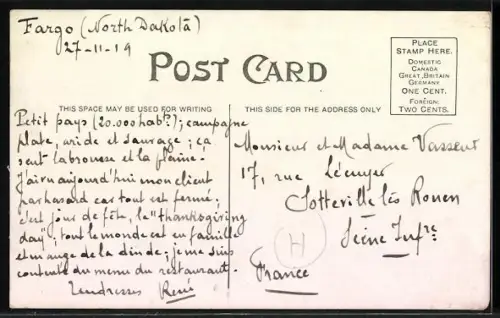 Fargo (North Dakota)
27-11-19
POST CARD
PLACE
STAMP HERE.
DOMESTIC
CANADA
GREAT BRITAIN
GERMANY
ONE CENT.
FOREIGN:
TWO CENTS.
THIS SPACE MAY BE USED FOR WRITING
THIS SIDE FOR THE ADDRESS ONLY
Petit pays (20.000 habts); campagne
plate, aride et sauvage; ça
sent la brousse et la plaine.
J'ai vu aujourd'hui mon client
par hasard car tout est fermé;
c'est jour de fête, le "thanksgiving
day"; tout le monde est en famille
et mange de la dinde; je me suis
contenté du menu du restaurant.
Tendresses René
Monsieur et Madame Vasseur
17, rue Lécuyer
Sotteville lès Rouen
Seine Infre
France
H